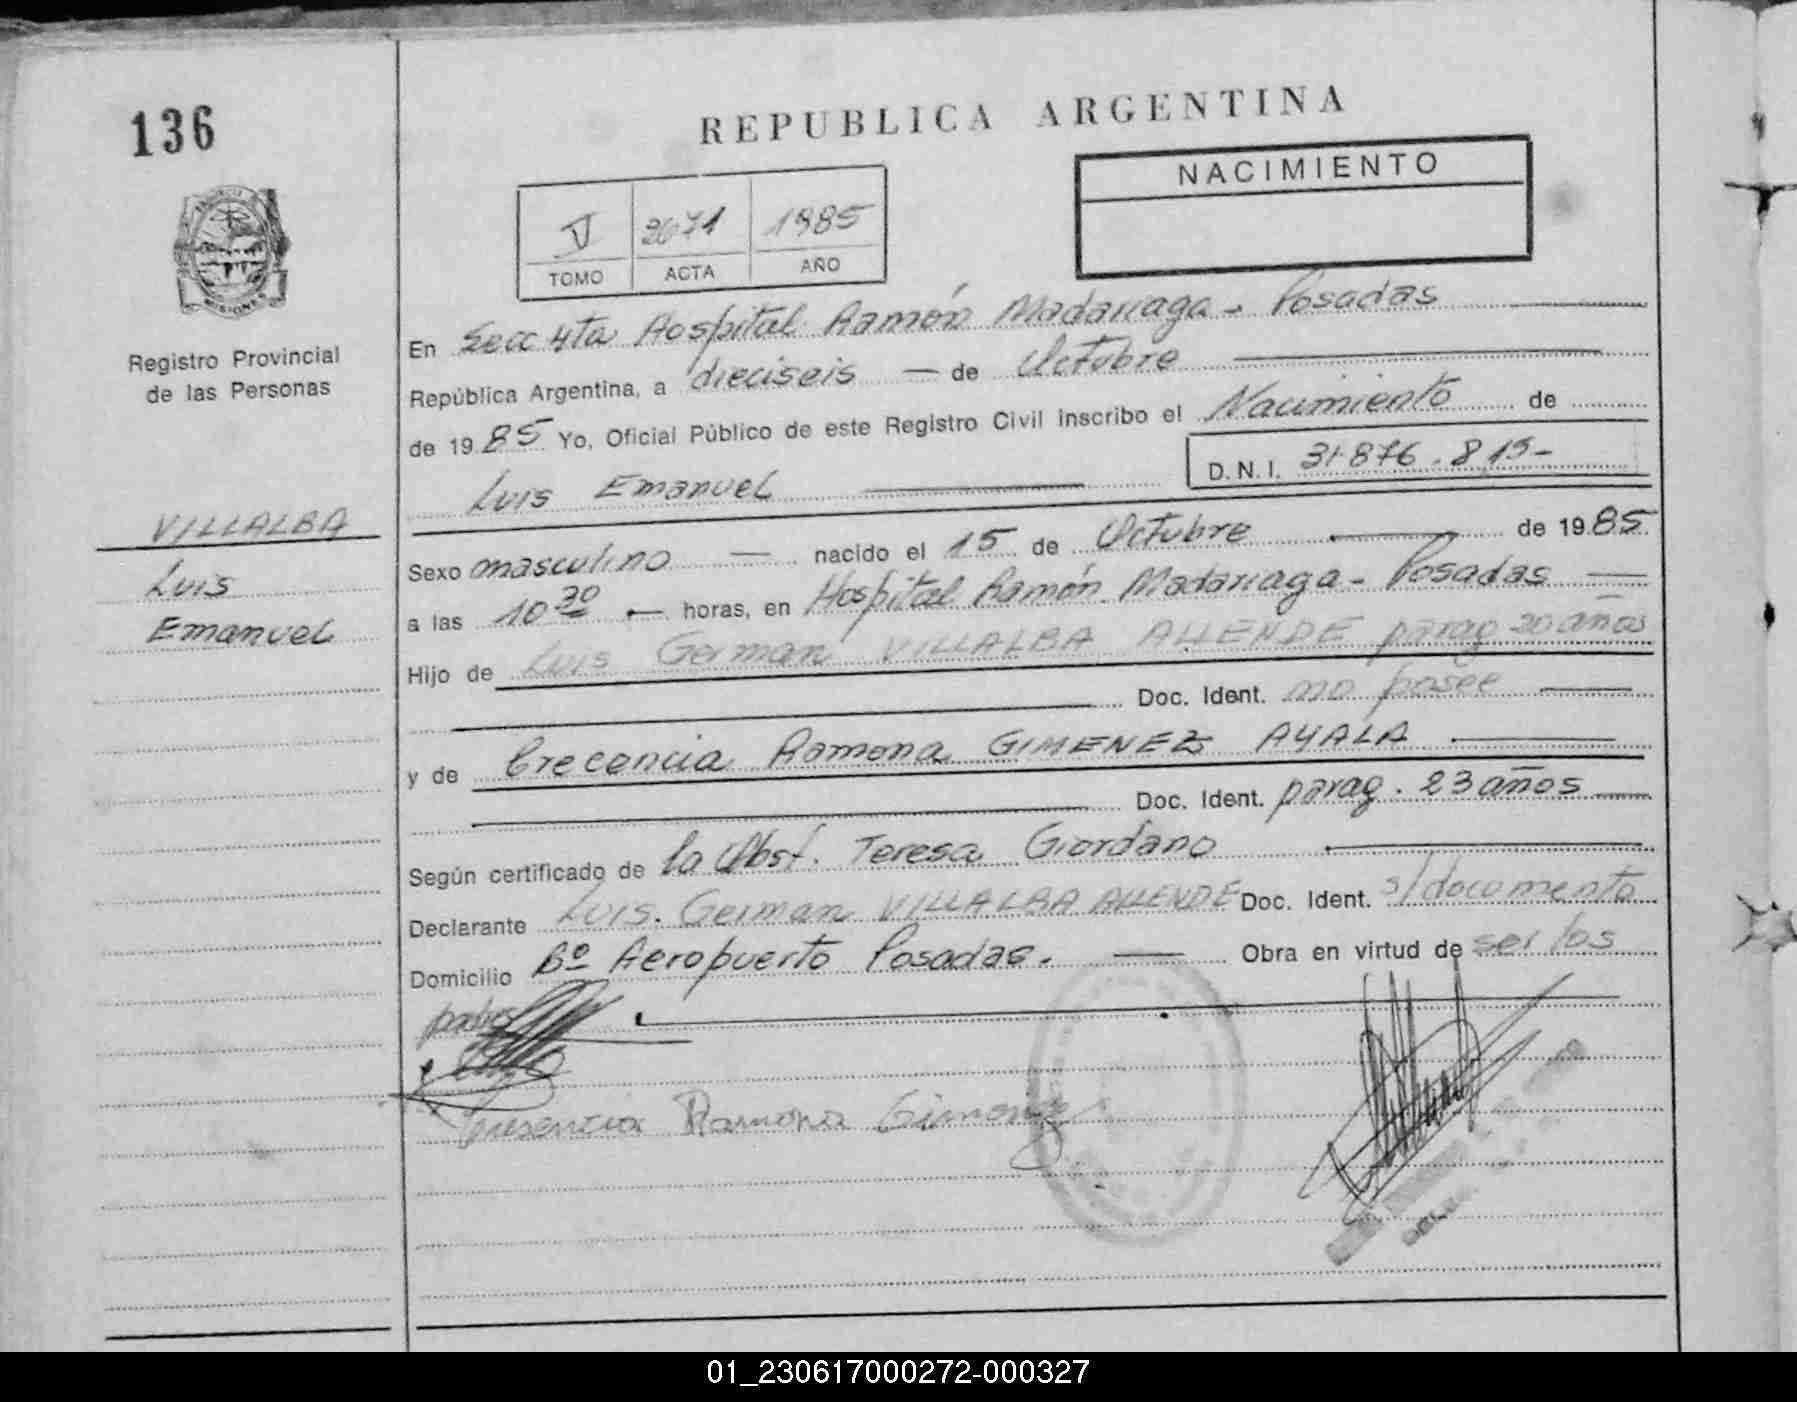 136
REPUBLICA ARGENTINA
NACIMIENTO
V 2671 1985
TOMO ACTA AÑO
Registro Provincial
de las Personas
VILLALBA
Luis
Emanuel
En Secc 4ta Hospital Ramón Madariaga - Posadas
República Argentina, a dieciseis — de Octubre
de 1985 Yo, Oficial Público de este Registro Civil inscribo el Nacimiento de
Luis Emanuel D.N.I. 31.876.815-
Sexo masculino — nacido el 15 de Octubre de 1985
a las 10 30 — horas, en Hospital Ramón Madariaga - Posadas —
Hijo de Luis German VILLALBA ALLENDE parag 20 años
Doc. Ident. no posee
y de Crecencia Ramona GIMENEZ AYALA
Doc. Ident. parag. 23 años
Según certificado de la Obst. Teresa Giordano
Declarante Luis. German VILLALBA ALLENDE Doc. Ident. s/documento
Domicilio Bº Aeropuerto Posadas. — Obra en virtud de ser los
padres
Cresencia Ramona Gimenez
01_230617000272-000327